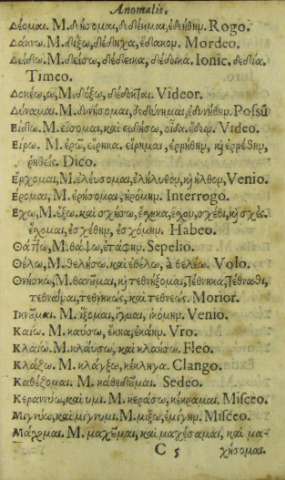 Anomalis.
Δέομαι. M. δεήσομαι, δεδέημαι, ἐδεήθην. Rogo.
Δάκνω. M. δήξω, δέδηχα, ἔδακον. Mordeo.
Δείδω. M. δείσω, δέδεικα, Ionic. δέδια.
Timeo.
Δοκέω, ω, M. δόξω, δέδογμαι. Videor.
Δύναμαι. M. δυνήσομαι, δεδύνημαι, ἐδυνήθην. Possũ
Εἴδω. M. εἴσομαι, καὶ εἰδήσω, οἶδα. Video.
Εἴρω. M. ἐρῶ, εἴρηκα. εἴρημαι, ἐρρήθην, κὶ ἐρρέθην,
ῥηθείς. Dico.
Ερχομαι. M. ἐλεύσομαι, ἐλήλυθον, κὶ ἦλθον, Venio.
Ερομαι. M. ἐρήσομαι, ἠρόμην. Interrogo.
Εχω, M. ἕξω. καὶ σχήσω, ἔσχηκα, ἔσχον,
ἔχομαι, ἐσχέθην, ἐσχόμην. Habeo.
Θάπτω, M. θάψω, ἐτάφην. Sepelio.
Θέλω, M. θελήσω. καὶ ἐθέλω, Volo.
Θνήσκω, M. θανοῦμαι, κὶ τεθνήξομαι, τέθνηκα,
τεθνηκὼς, καὶ τεθνεώς. Morior.
Ικνοῦμαι. M. ἵξομαι, ἷγμαι, ἱκόμην. Venio.
Καίω. M. καύσω, ἔκηα, ἐκάην. Vro.
Κλαίω. M. κλαύσω, καὶ κλαιήσω. Fleo.
Κλάζω. M. κλάγξω, κέκληγα. Clango.
Καθέζομαι. M. καθεδοῦμαι. Sedeo.
Κεραννύω, καὶ υμι. M. κεράσω, κέκραμαι. Misceo.
Μιγνύω, καὶ μίγνυμι. M. μίξω, ἐμίγην. Misceo.
Μάχομαι. M. μαχοῦμαι, καὶ μαχέσομαι, καὶ μα-
C 5 χήσομαι.